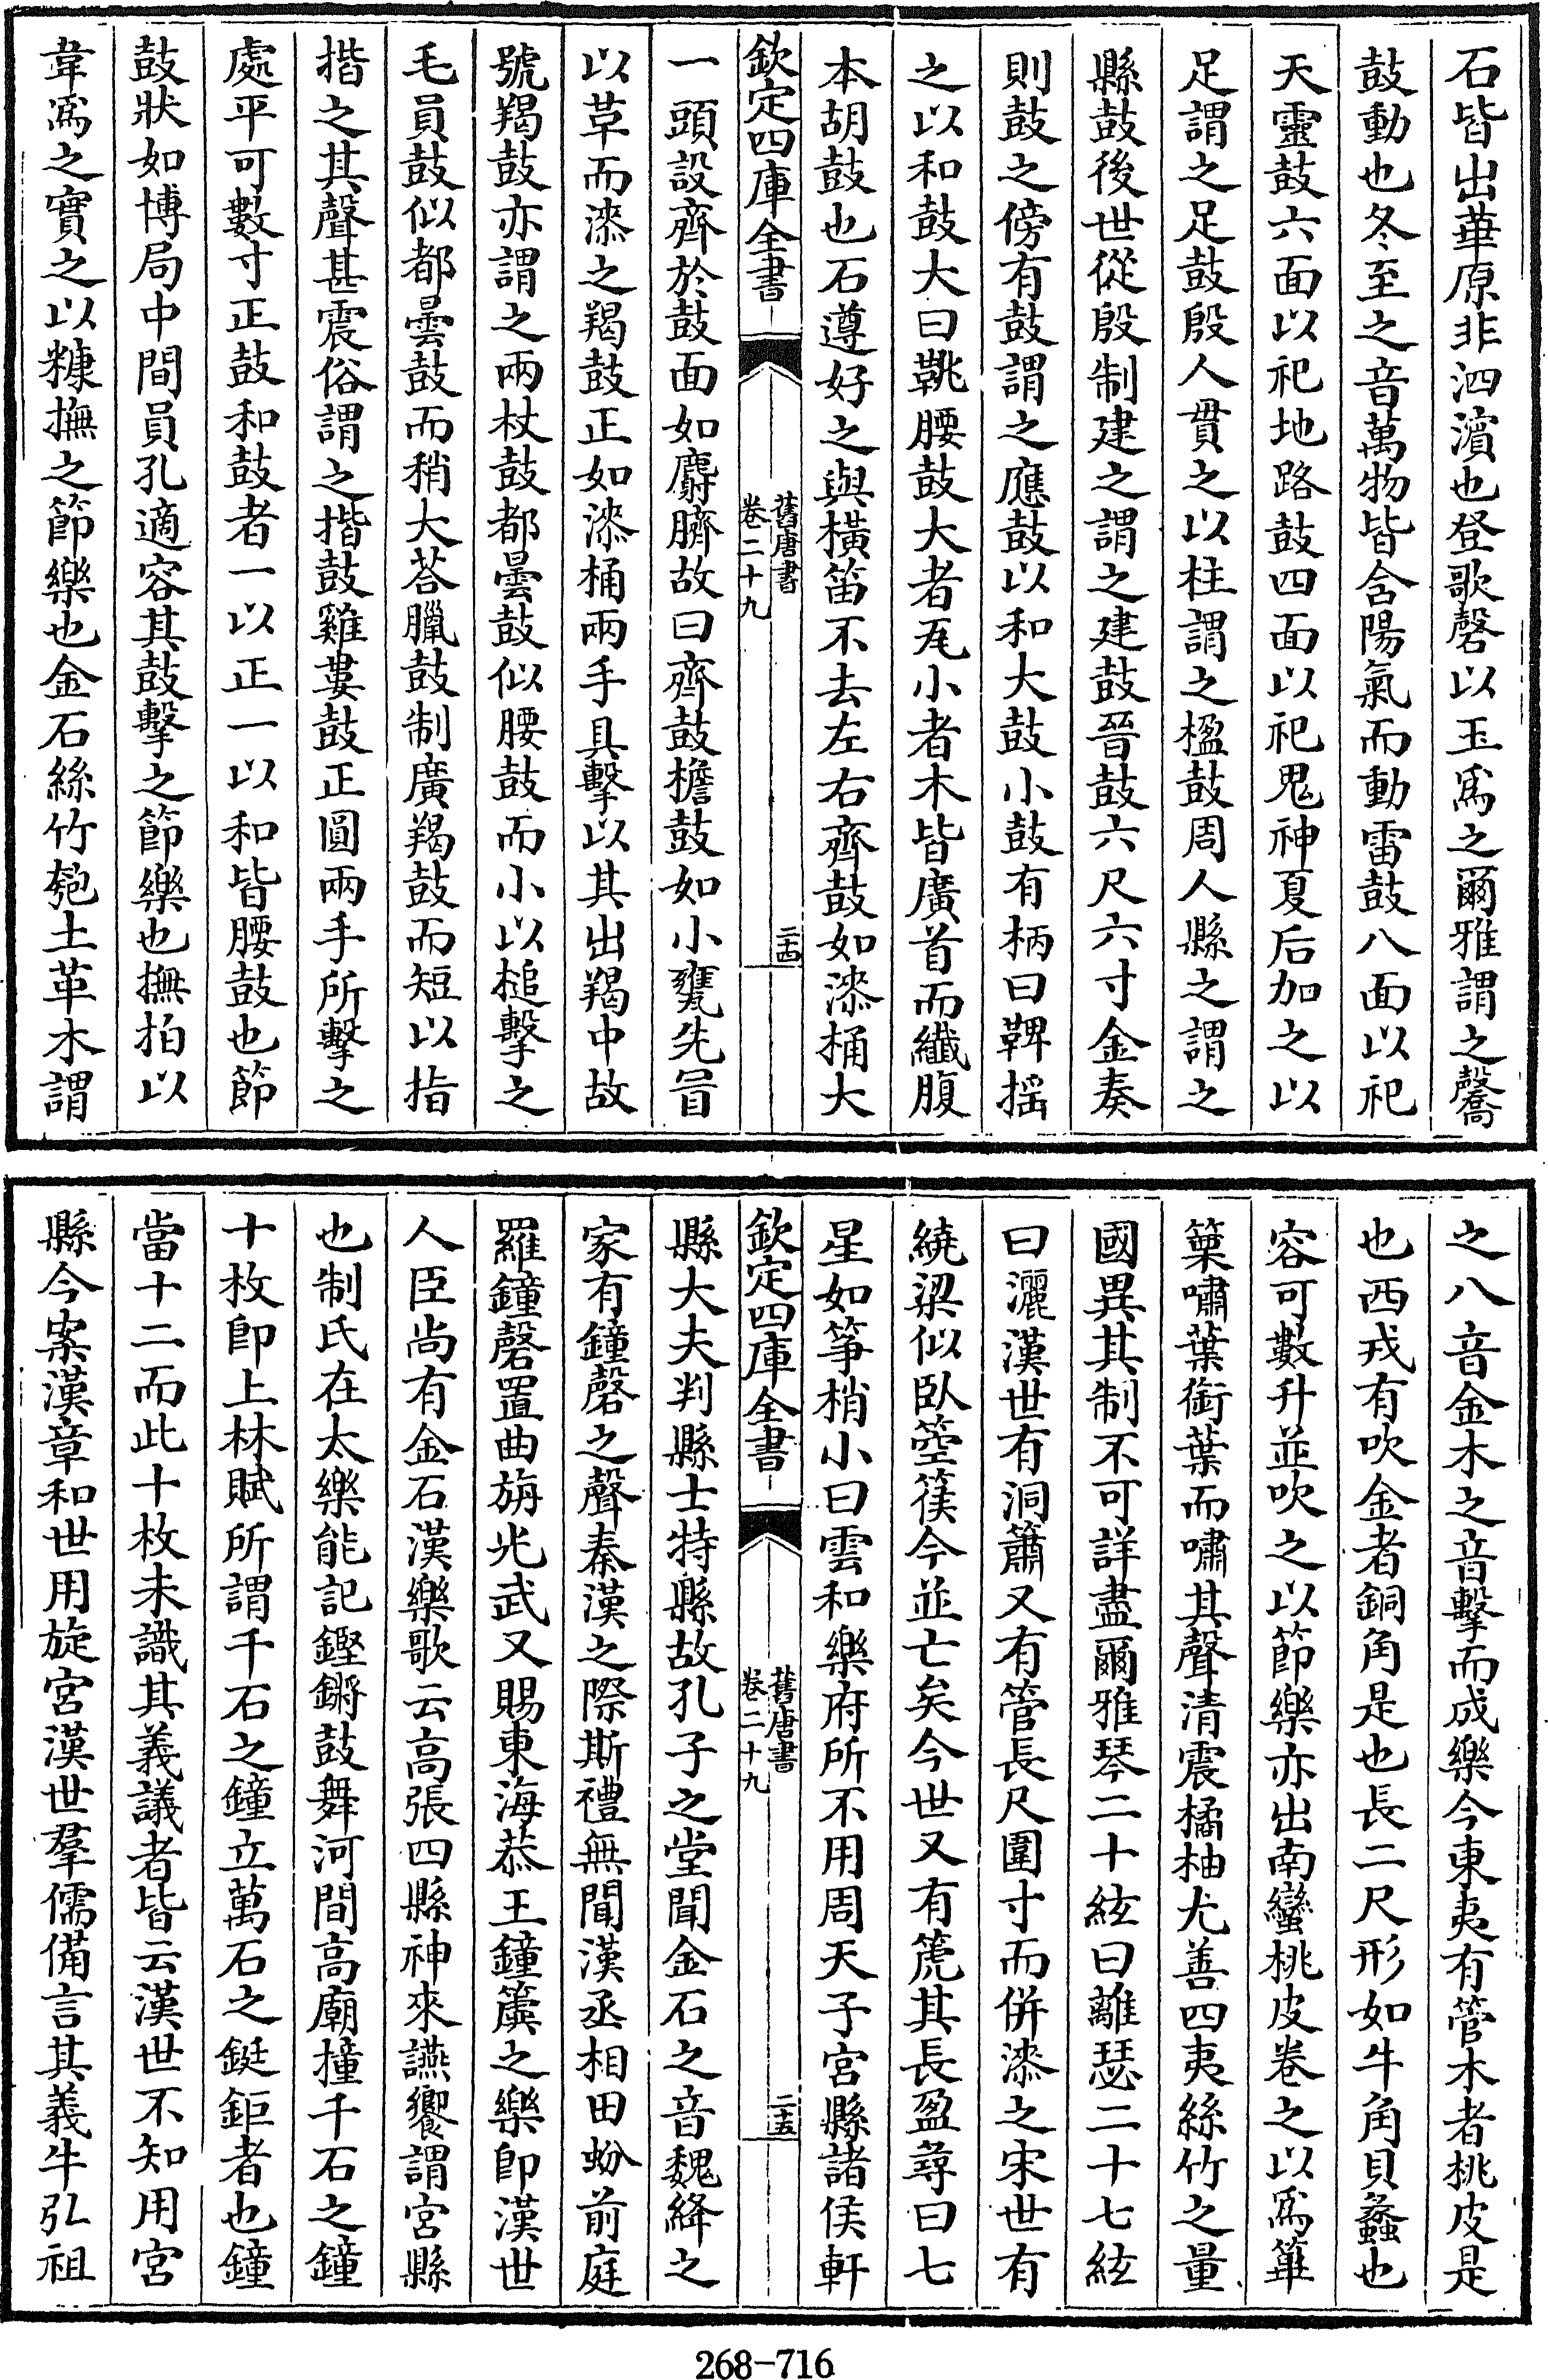 石皆出華原非泗濱也登歌磬以玉爲之爾雅謂之毊
鼓動也冬至之音萬物皆含陽氣而動雷鼓八面以祀
天靈鼓六面以祀地路鼓四面以祀鬼神夏后加之以
足謂之足鼓殷人貫之以柱謂之楹鼓周人縣之謂之
縣鼓後世從殷制建之謂之建鼓晉鼓六尺六寸金奏
則鼓之傍有鼓謂之應鼓以和大鼓小鼓有柄曰鞞揺
之以和鼓大曰鞉腰鼓大者瓦小者木皆廣首而纖腹
本胡鼓也石遵好之與橫笛不去左右齊鼓如漆桶大
欽定四庫全書
舊唐書
卷二十九
二十四
一頭設齊於鼓面如麝臍故曰齊鼓檐鼓如小甕先冒
以革而漆之羯鼓正如漆桶兩手具擊以其出羯中故
號羯鼓亦謂之兩杖鼓都曇鼓似腰鼓而小以槌擊之
毛員鼓似都曇鼓而稍大荅臘鼓制廣羯鼓而短以指
揩之其聲甚震俗謂之揩鼓雞婁鼓正圓兩手所擊之
處平可數寸正鼓和鼓者一以正一以和皆腰鼓也節
鼓狀如博局中間員孔適容其鼓擊之節樂也撫拍以
韋爲之實之以糠撫之節樂也金石絲竹匏土革木謂
之八音金木之音擊而成樂今東夷有管木者桃皮是
也西戎有吹金者銅角是也長二尺形如牛角貝蠡也
容可數升並吹之以節樂亦出南蠻桃皮卷之以爲篳
篥嘯葉銜葉而嘯其聲清震橘柚尤善四夷絲竹之量
國異其制不可詳盡爾雅琴二十絃曰離瑟二十七絃
曰灑漢世有洞簫又有管長尺圍寸而併漆之宋世有
繞梁似臥箜篌今並亡矣今世又有篪其長盈尋曰七
星如箏梢小曰雲和樂府所不用周天子宮縣諸侯軒
欽定四庫全書
舊唐書
卷二十九
二十五
縣大夫判縣士特縣故孔子之堂聞金石之音魏絳之
家有鐘磬之聲秦漢之際斯禮無聞漢丞相田蚡前庭
羅鐘磬置曲旃光武又賜東海恭王鐘簴之樂即漢世
人臣尚有金石漢樂歌云高張四縣神來讌饗謂宮縣
也制氏在太樂能記鏗鏘鼓舞河間高廟撞千石之鐘
十枚即上林賦所謂千石之鐘立萬石之鋌鉅者也鐘
當十二而此十枚未識其義議者皆云漢世不知用宮
縣今案漢章和世用旋宮漢世羣儒備言其義牛弘祖
268-716